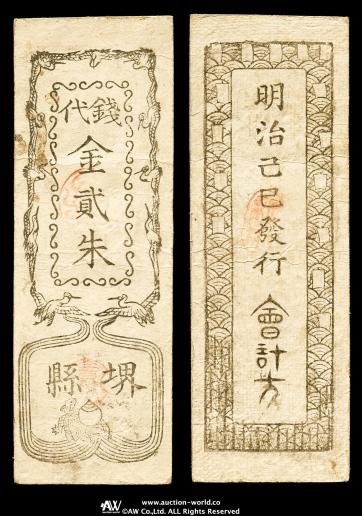 錢代
金貳朱
堺縣
明治己巳發行
會計方
AW
www.auction-world.co
©AW Co.,Ltd. ALL Rights Reserved